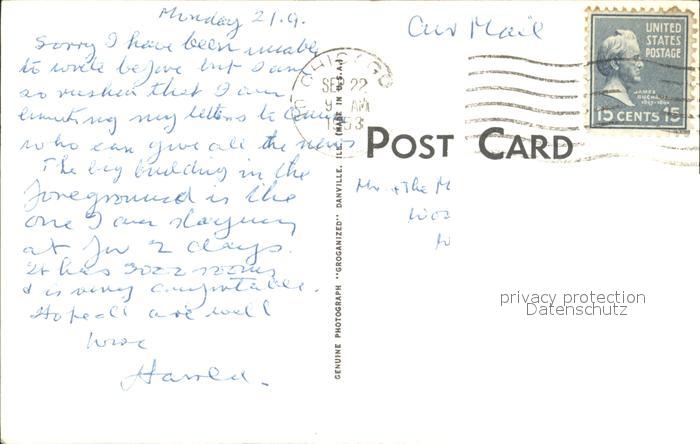 Monday 21.9.
Sorry I have been unable
to write before but I am
so rushed that I am
my letters to
who can give all the news
The big building in the
foreground is the
one I am staying
at for 2 days.
It has rooms
& is very comfortable.
Hope all are well
love
Harold.
Air Mail
UNITED
STATES
POSTAGE
JAMES
BUCHANAN
1857-1861
15 CENTS 15
CHICAGO
SEP 22
9 AM
1953
POST CARD
Mr + The M
privacy protection
Datenschutz
GENUINE PHOTOGRAPH "GROGANIZED" DANVILLE, ILL. (MADE IN U.S.A.)